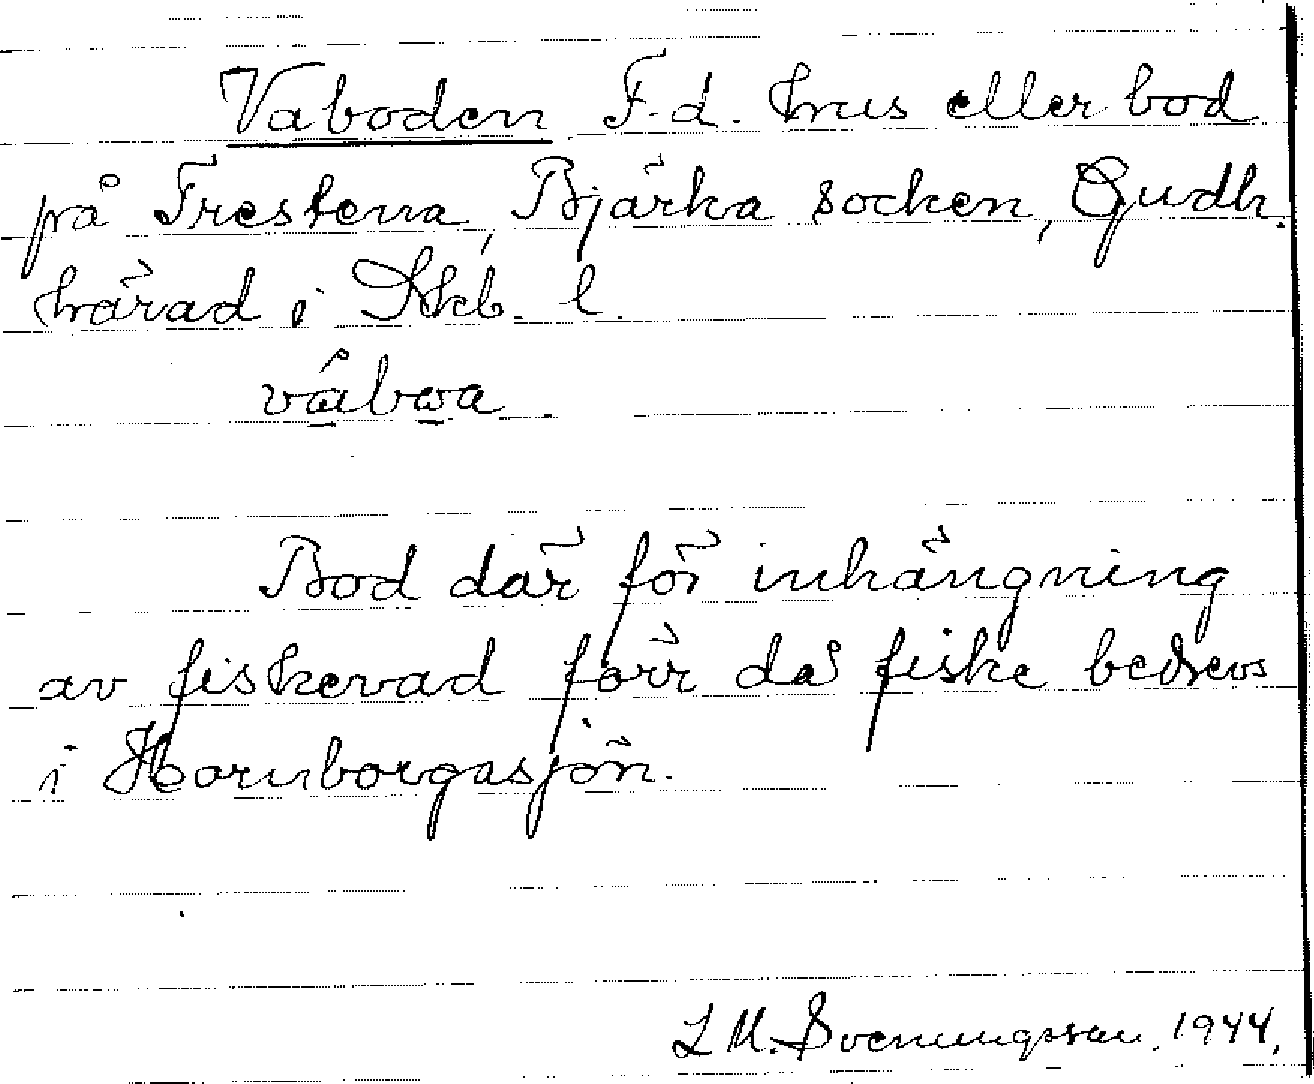 Vaboden F.d. hus eller bod
på Trestena, Bjärka socken, Gudh.
härad i Skb. l.
våbωa
Bod där för inhängning
av fiskevad förr då fiske bedrevs
i Hornborgasjön.
L M. Svenungsson. 1944.